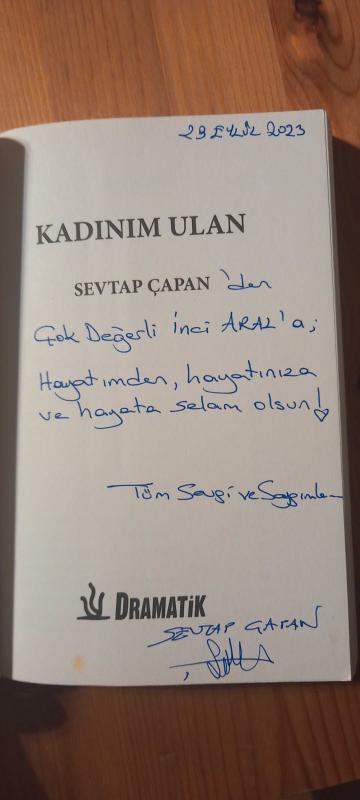 29 EYLÜL 2023
KADINIM ULAN
SEVTAP ÇAPAN 'den
Çok Değerli İnci ARAL'a;
Hayatımdan, hayatınıza
ve hayata selam olsun!
Tüm Sevgi ve Saygımla
DRAMATİK
SEVTAP ÇAPAN